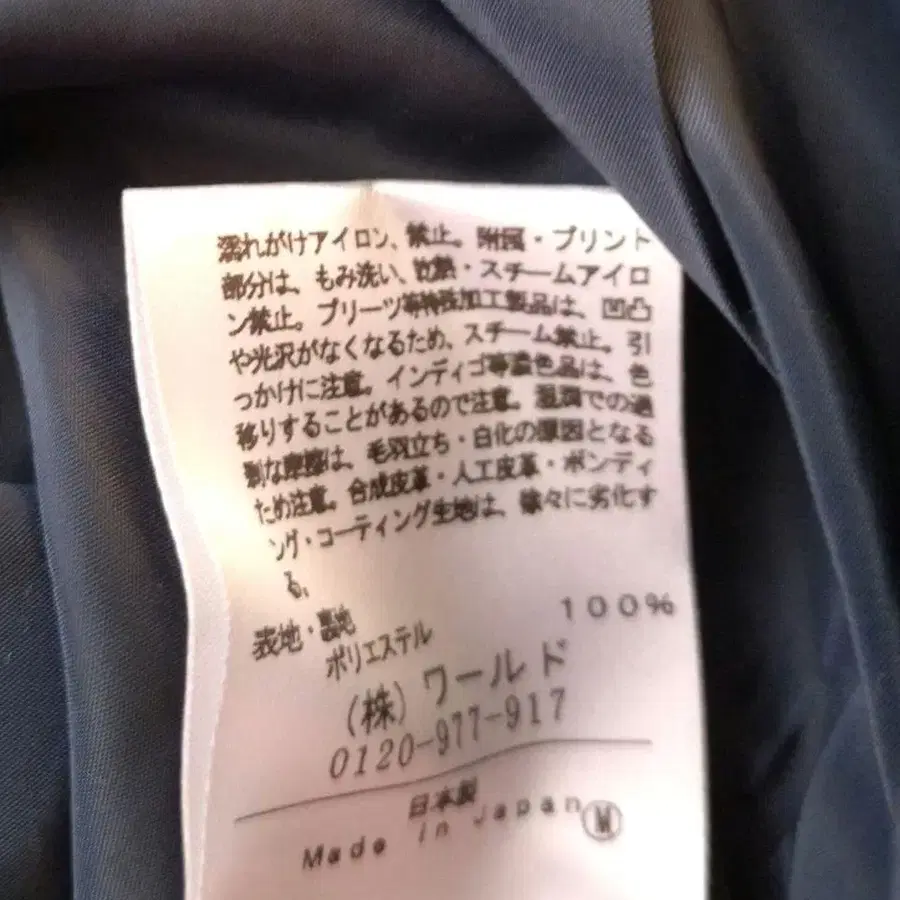 濡れがけアイロン、禁止。附属・プリント
部分は、もみ洗い、乾熱・スチームアイロ
ン禁止。プリーツ等特殊加工製品は、凹凸
や光沢がなくなるため、スチーム禁止。引
っかけに注意。インディゴ等濃色品は、色
移りすることがあるので注意。湿潤での過
剰な摩擦は、毛羽立ち・白化の原因となる
ため注意。合成皮革・人工皮革・ボンディ
ング・コーティング生地は、徐々に劣化す
る。
表地・裏地
ポリエステル 100%
(株)ワールド
0120-977-917
日本製
Made in Japan Ⓦ